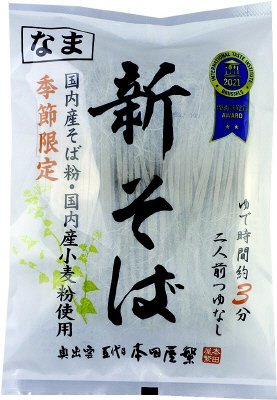 なま
季節限定
国内産そば粉・国内産小麦粉使用
新そば
INTERNATIONAL TASTE INSTITUTE
2021
BRUSSELS
AWARD
ゆで時間約3分
二人前つゆなし
奥出雲 五代目 本田屋繁
本田屋繁